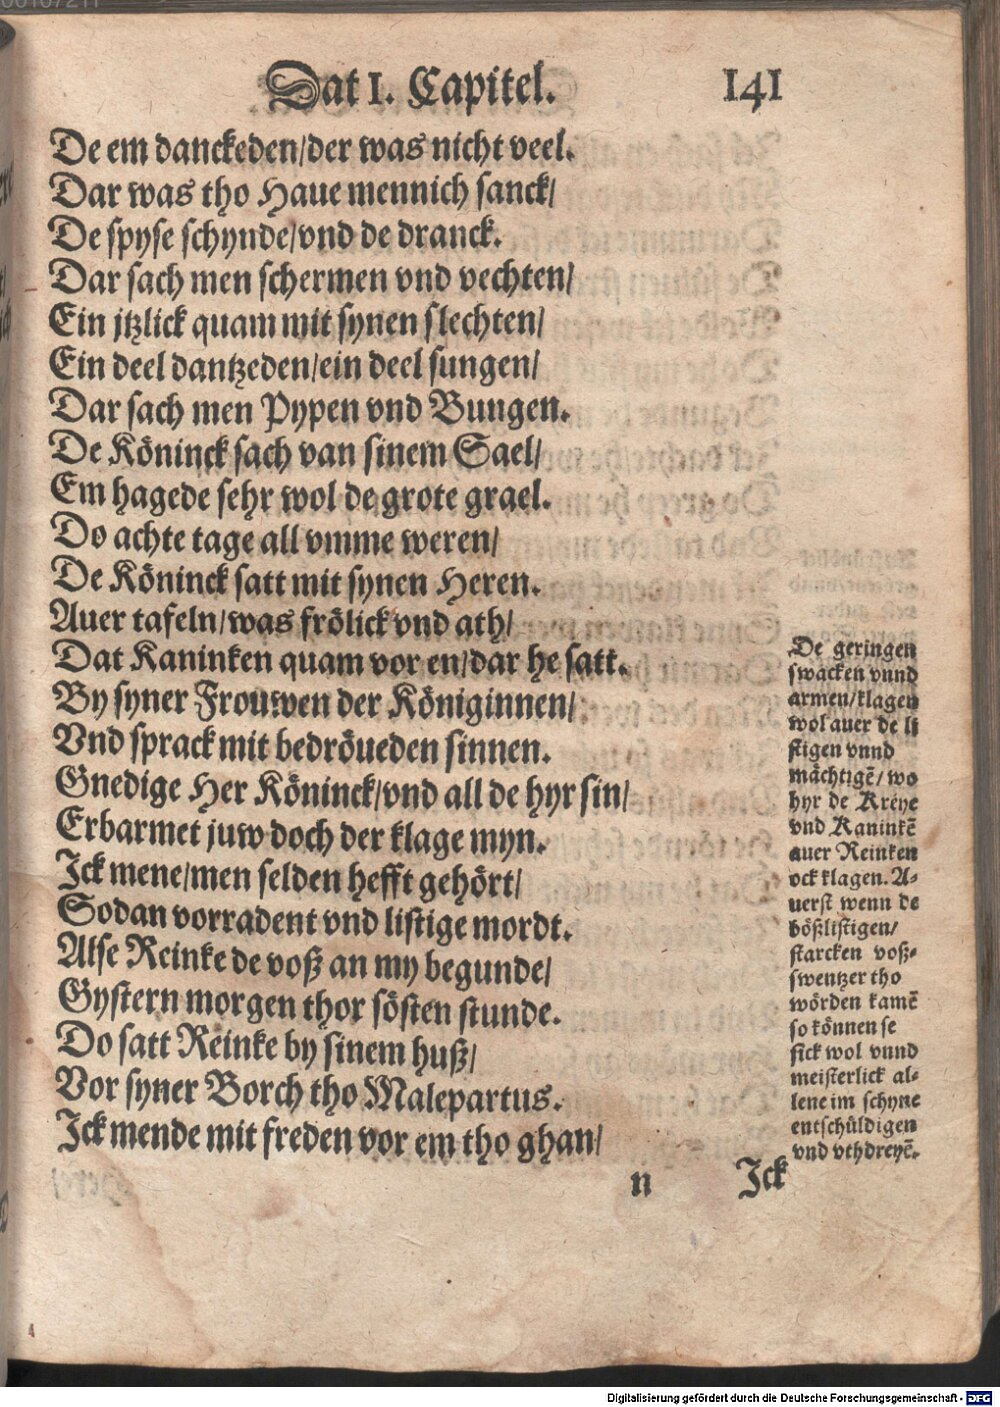 Dat I. Capitel. 141
De em danckeden/der was nicht veel.
Dar was tho Haue mennich sanck/
De spyse schynde/vnd de dranck.
Dar sach men schermen vnd vechten/
Ein jtzlick quam mit synen slechten/
Ein deel dantzeden/ein deel sungen/
Dar sach men Pypen vnd Bungen.
De Köninck sach van sinem Sael/
Em hagede sehr wol de grote grael.
Do achte tage all vmme weren/
De Köninck satt mit synen Heren.
Auer tafeln/was frölick vnd ath/
Dat Kaninken quam vor en/dar he satt.
By syner Frouwen der Königinnen/
Vnd sprack mit bedröueden sinnen.
Gnedige Her Köninck/vnd all de hyr sin/
Erbarmet juw doch der klage myn.
Ick mene/men selden hefft gehört/
Sodan vorradent vnd listige mordt.
Alse Reinke de voß an my begunde/
Gystern morgen thor sösten stunde.
Do satt Reinke by sinem huß/
Vor syner Borch tho Malepartus.
Ick mende mit freden vor em tho ghan/
De geringen
swacken vnnd
armen/klagen
wol auer de li
stigen vnnd
mächtigē/wo
hyr de Kreye
vnd Kaninkē
auer Reinken
ock klagen. A-
uerst wenn de
bößlistigen/
starcken voß-
swentzer tho
wörden kamē
so können se
sick wol vnnd
meisterlick al-
lene im schyne
entschüldigen
vnd vthdreyē.
n Ick
Digitalisierung gefördert durch die Deutsche Forschungsgemeinschaft - DFG